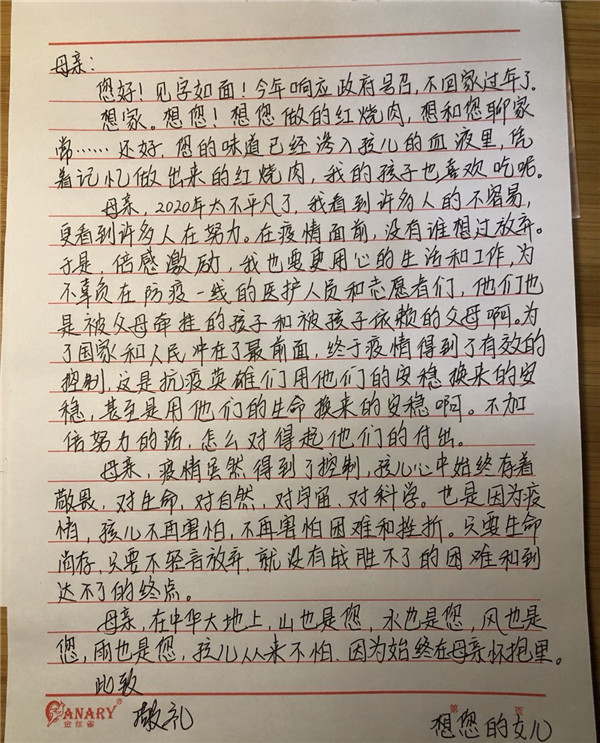 母亲：
您好！见字如面！今年响应政府号召，不回家过年了。
想家。想您！想您做的红烧肉，想和您聊家
常……还好，您的味道已经渗入孩儿的血液里，凭
着记忆做出来的红烧肉，我的孩子也喜欢吃呢。
母亲，2020年太不平凡了，我看到许多人的不容易，
更看到许多人在努力。在疫情面前，没有谁想过放弃。
于是，倍感激励，我也要更用心的生活和工作，为
不辜负在防疫一线的医护人员和志愿者们，他们也
是被父母牵挂的孩子和被孩子依赖的父母啊。为
了国家和人民，冲在了最前面，终于疫情得到了有效的
控制，这是抗疫英雄们用他们的安稳换来的安
稳，甚至是用他们的生命换来的安稳啊。不加
倍努力的话，怎么对得起他们的付出。
母亲，疫情虽然得到了控制，孩儿心中始终存着
敬畏，对生命，对自然，对宇宙，对科学。也是因为疫
情，孩儿不再害怕，不再害怕困难和挫折。只要生命
尚存，只要不轻言放弃，就没有战胜不了的困难和到
达不了的终点。
母亲，在中华大地上，山也是您，水也是您，风也是
您，雨也是您，孩儿从来不怕，因为始终在母亲怀抱里。
此致
敬礼
想您的女儿
CANARY®
金丝雀
第 页